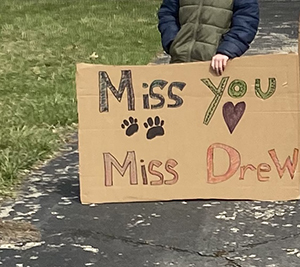 Miss You
Miss Drew